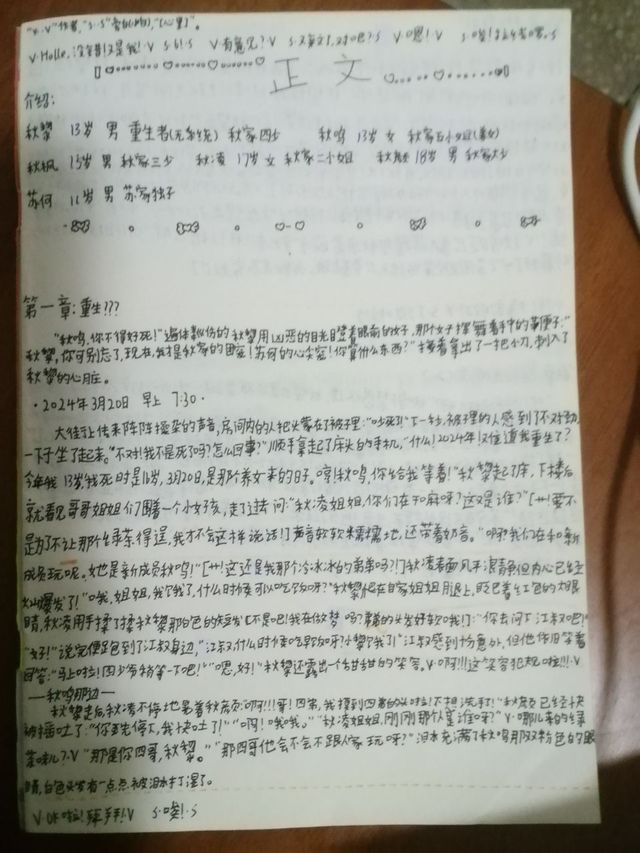 "V··V"作者,"S··S"
V·Hello,没错!又是我!·V S·6!·S V·有意见?·V S·对吧?·S V·嗯!·V
正文
介绍:
秋黎 13岁 男 重生者(无系统) 秋家四少 秋鸣 13岁 女 秋家五小姐(养女)
秋枫 15岁 男 秋家三少 秋凌 17岁 女 秋家二小姐 秋 18岁 男 秋家大少
苏何 岁 男 苏家独子
第一章:重生???
"秋鸣,你不得好死!"遍体鳞伤的秋黎用凶恶的目光瞪着眼前的女子,那个女子挥舞着手中的鞭子:"
秋黎,你可别忘了,现在,我才是秋家的团宠!苏何的心尖宠!你算什么东西?"接着拿出了一把小刀,刺入了
秋黎的心脏。
·2024年3月20日 早上 7:30·
大街上传来阵阵嘈杂的声音,房间内的人把头蒙在了被子里:"吵死了!"下一秒,被子里的人感到了不对劲,
一下子坐了起来。"不对!我不是死了吗?怎么回事?"顺手拿起了床头的手机,"什么!2024年!难道我重生了?
今年我13岁,我死时是18岁,3月20日,是那个养女来的日子。哼!秋鸣,你给我等着!"秋黎起了床,下楼后
就看见哥哥姐姐们围着一个小女孩,走了过去问:"秋凌姐姐,你们在干嘛呀?这又是谁?"[艹!要不
是为了不让那个绿茶得逞,我才不会这样说话!]声音软软糯糯地,还带着奶音。"啊?我们在和新
成员玩呢。她是新成员秋鸣!"[艹!这还是我那个冷冰冰的弟弟吗?!]秋凌表面风平浪静但内心已经
火山爆发了!"哦,姐姐,我饿了,什么时候可以吃饭呀?"秋黎爬在自家姐姐腿上,眨巴着红色的大眼
睛,秋凌用手揉了揉秋黎那白色的短发[不是吧!我在做梦吗?弟弟的头发好软哦!]:"你去问下江叔吧!"
"好!"说完便跑到了江叔身边,"江叔,什么时候吃饭呀?小黎饿了!"江叔感到扮意外,但他依旧笑着
回答:"马上啦!四少爷稍等一下吧!""嗯,好!"秋黎还露出一个甜甜的笑容。V·啊!!!这笑容犯规啦!!!·V
——秋鸣那边——
秋黎走后,秋凌不停地晃着秋:"啊!!!哥!四弟,我摸到四弟的头啦!不想洗手了!"秋已经快
被摇吐了:"你先停下,我快吐了!""啊!哦哦。""秋凌姐姐,刚刚那个是谁呀?"V·哪儿来的绿
茶味儿?·V"那是你四哥,秋黎。""那四哥他会不会不跟人家玩呀?"泪水充满了秋鸣那双粉色的眼
睛,白色头发有一点点被泪水打湿了。
V·OK啦!拜拜!·V S·唉!·S